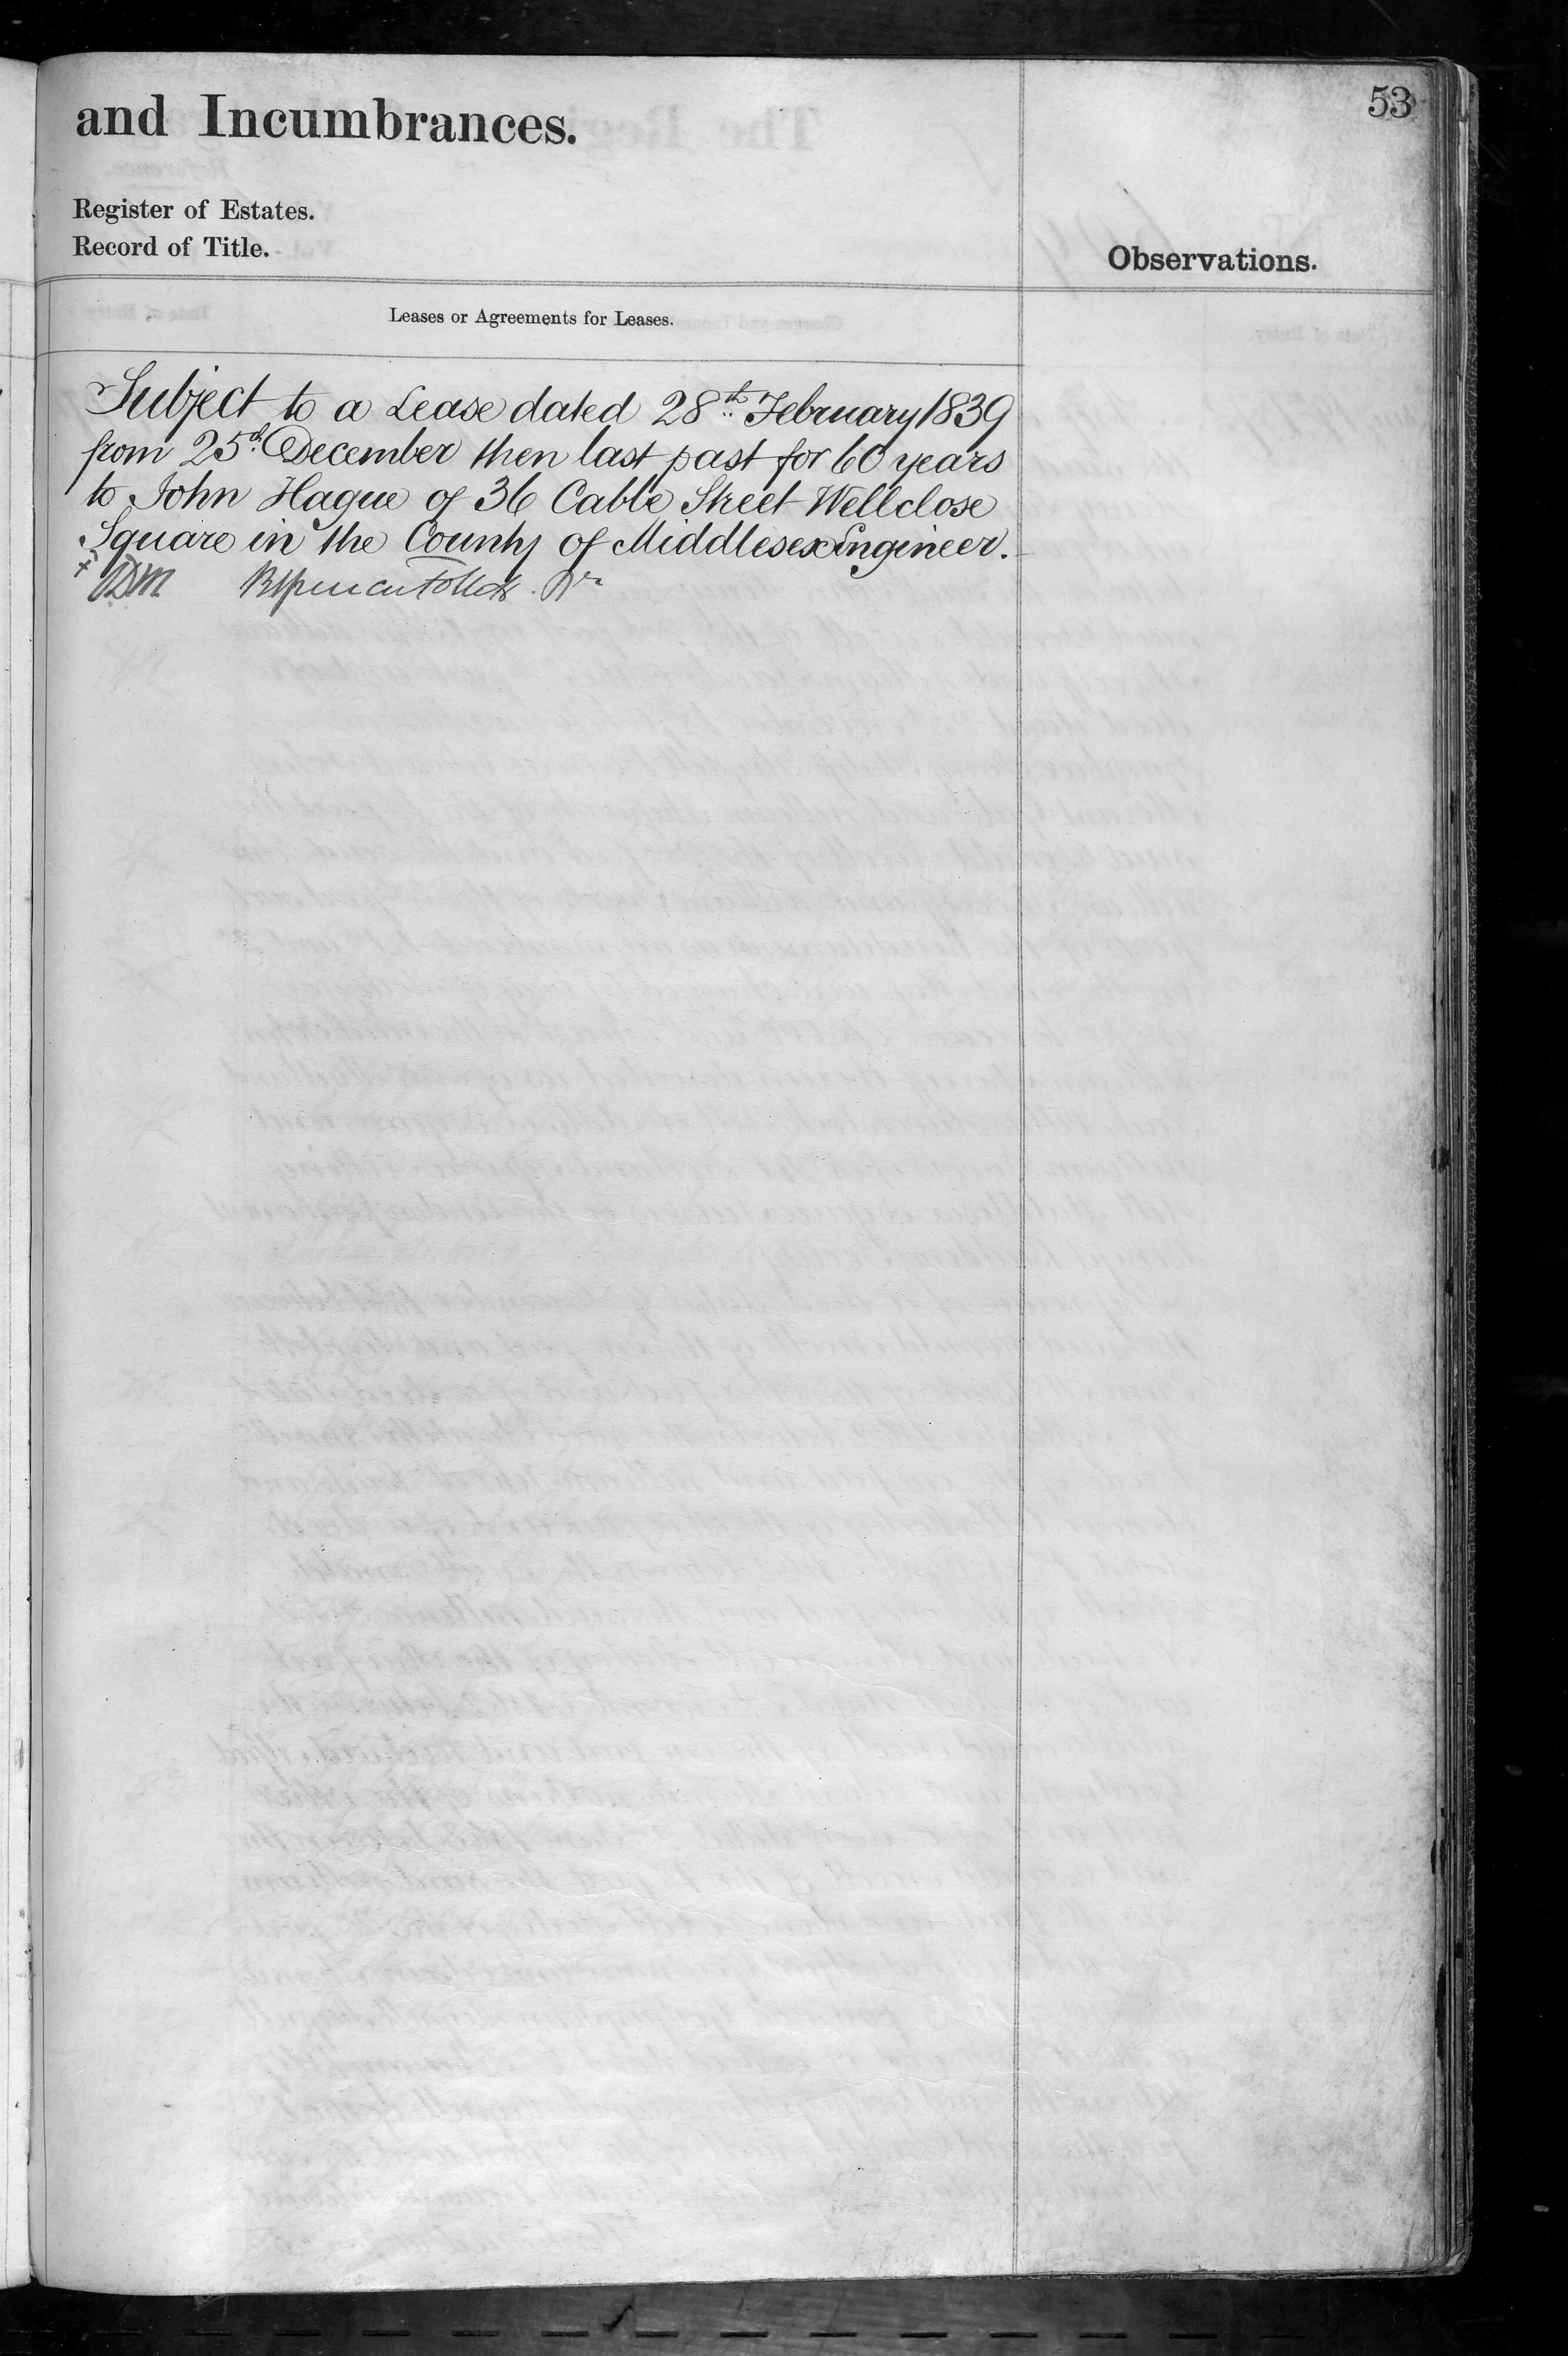 53
and Incumbrances.
Register of Estates.
Record of Title.
Observations.
Leases or Agreements for Leases.
Subject to a Lease dated 28th February 1839
from 25th December then last past for 60 years
to John Hague of 36 Cable Street Wellclose
Square in the County of Middlesex Engineer.